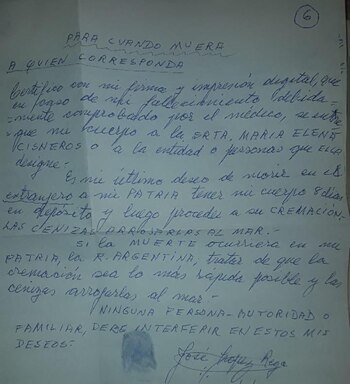 6
PARA CUANDO MUERA
A QUIEN CORRESPONDA
Certifico con mi firma y impresión digital, que
en caso de mi fallecimiento debida-
-mente comprobado por el médico, se entre
que mi cuerpo a la SRTA. MARIA ELENA
CISNEROS o a la entidad o personas que ella
designe.-
Es mi último deseo de morir en el
extranjero a mi PATRIA tener mi cuerpo 8 días
en depósito y luego proceder a su CREMACIÓN.
LAS CENIZAS ARROJARLAS AL MAR.-
Si la MUERTE ocurriera en mi
PATRIA, la R. ARGENTINA, tratar de que la
cremación sea lo más rápida posible y las
cenizas arrojarlas al mar.-
NINGUNA PERSONA-AUTORIDAD O
FAMILIAR, DEBE INTERFERIR EN ESTOS MIS
DESEOS.-
José Lopez Rega